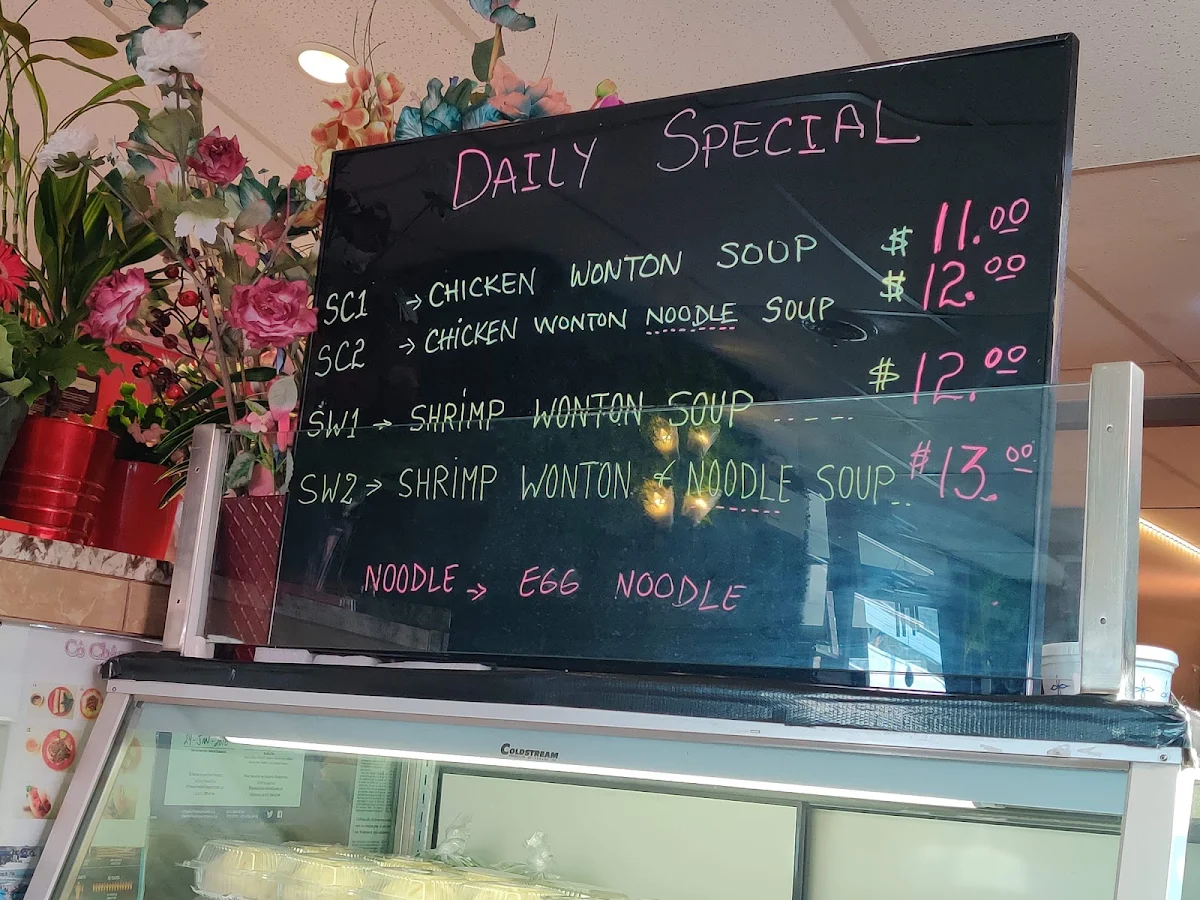 DAILY SPECIAL
SC1 → CHICKEN WONTON SOUP $ 11.00
SC2 → CHICKEN WONTON NOODLE SOUP $ 12.00
SW1 → SHRIMP WONTON SOUP ------ $ 12.00
SW2 → SHRIMP WONTON & NOODLE SOUP.. $13.00
NOODLE → EGG NOODLE
COLDSTREAM